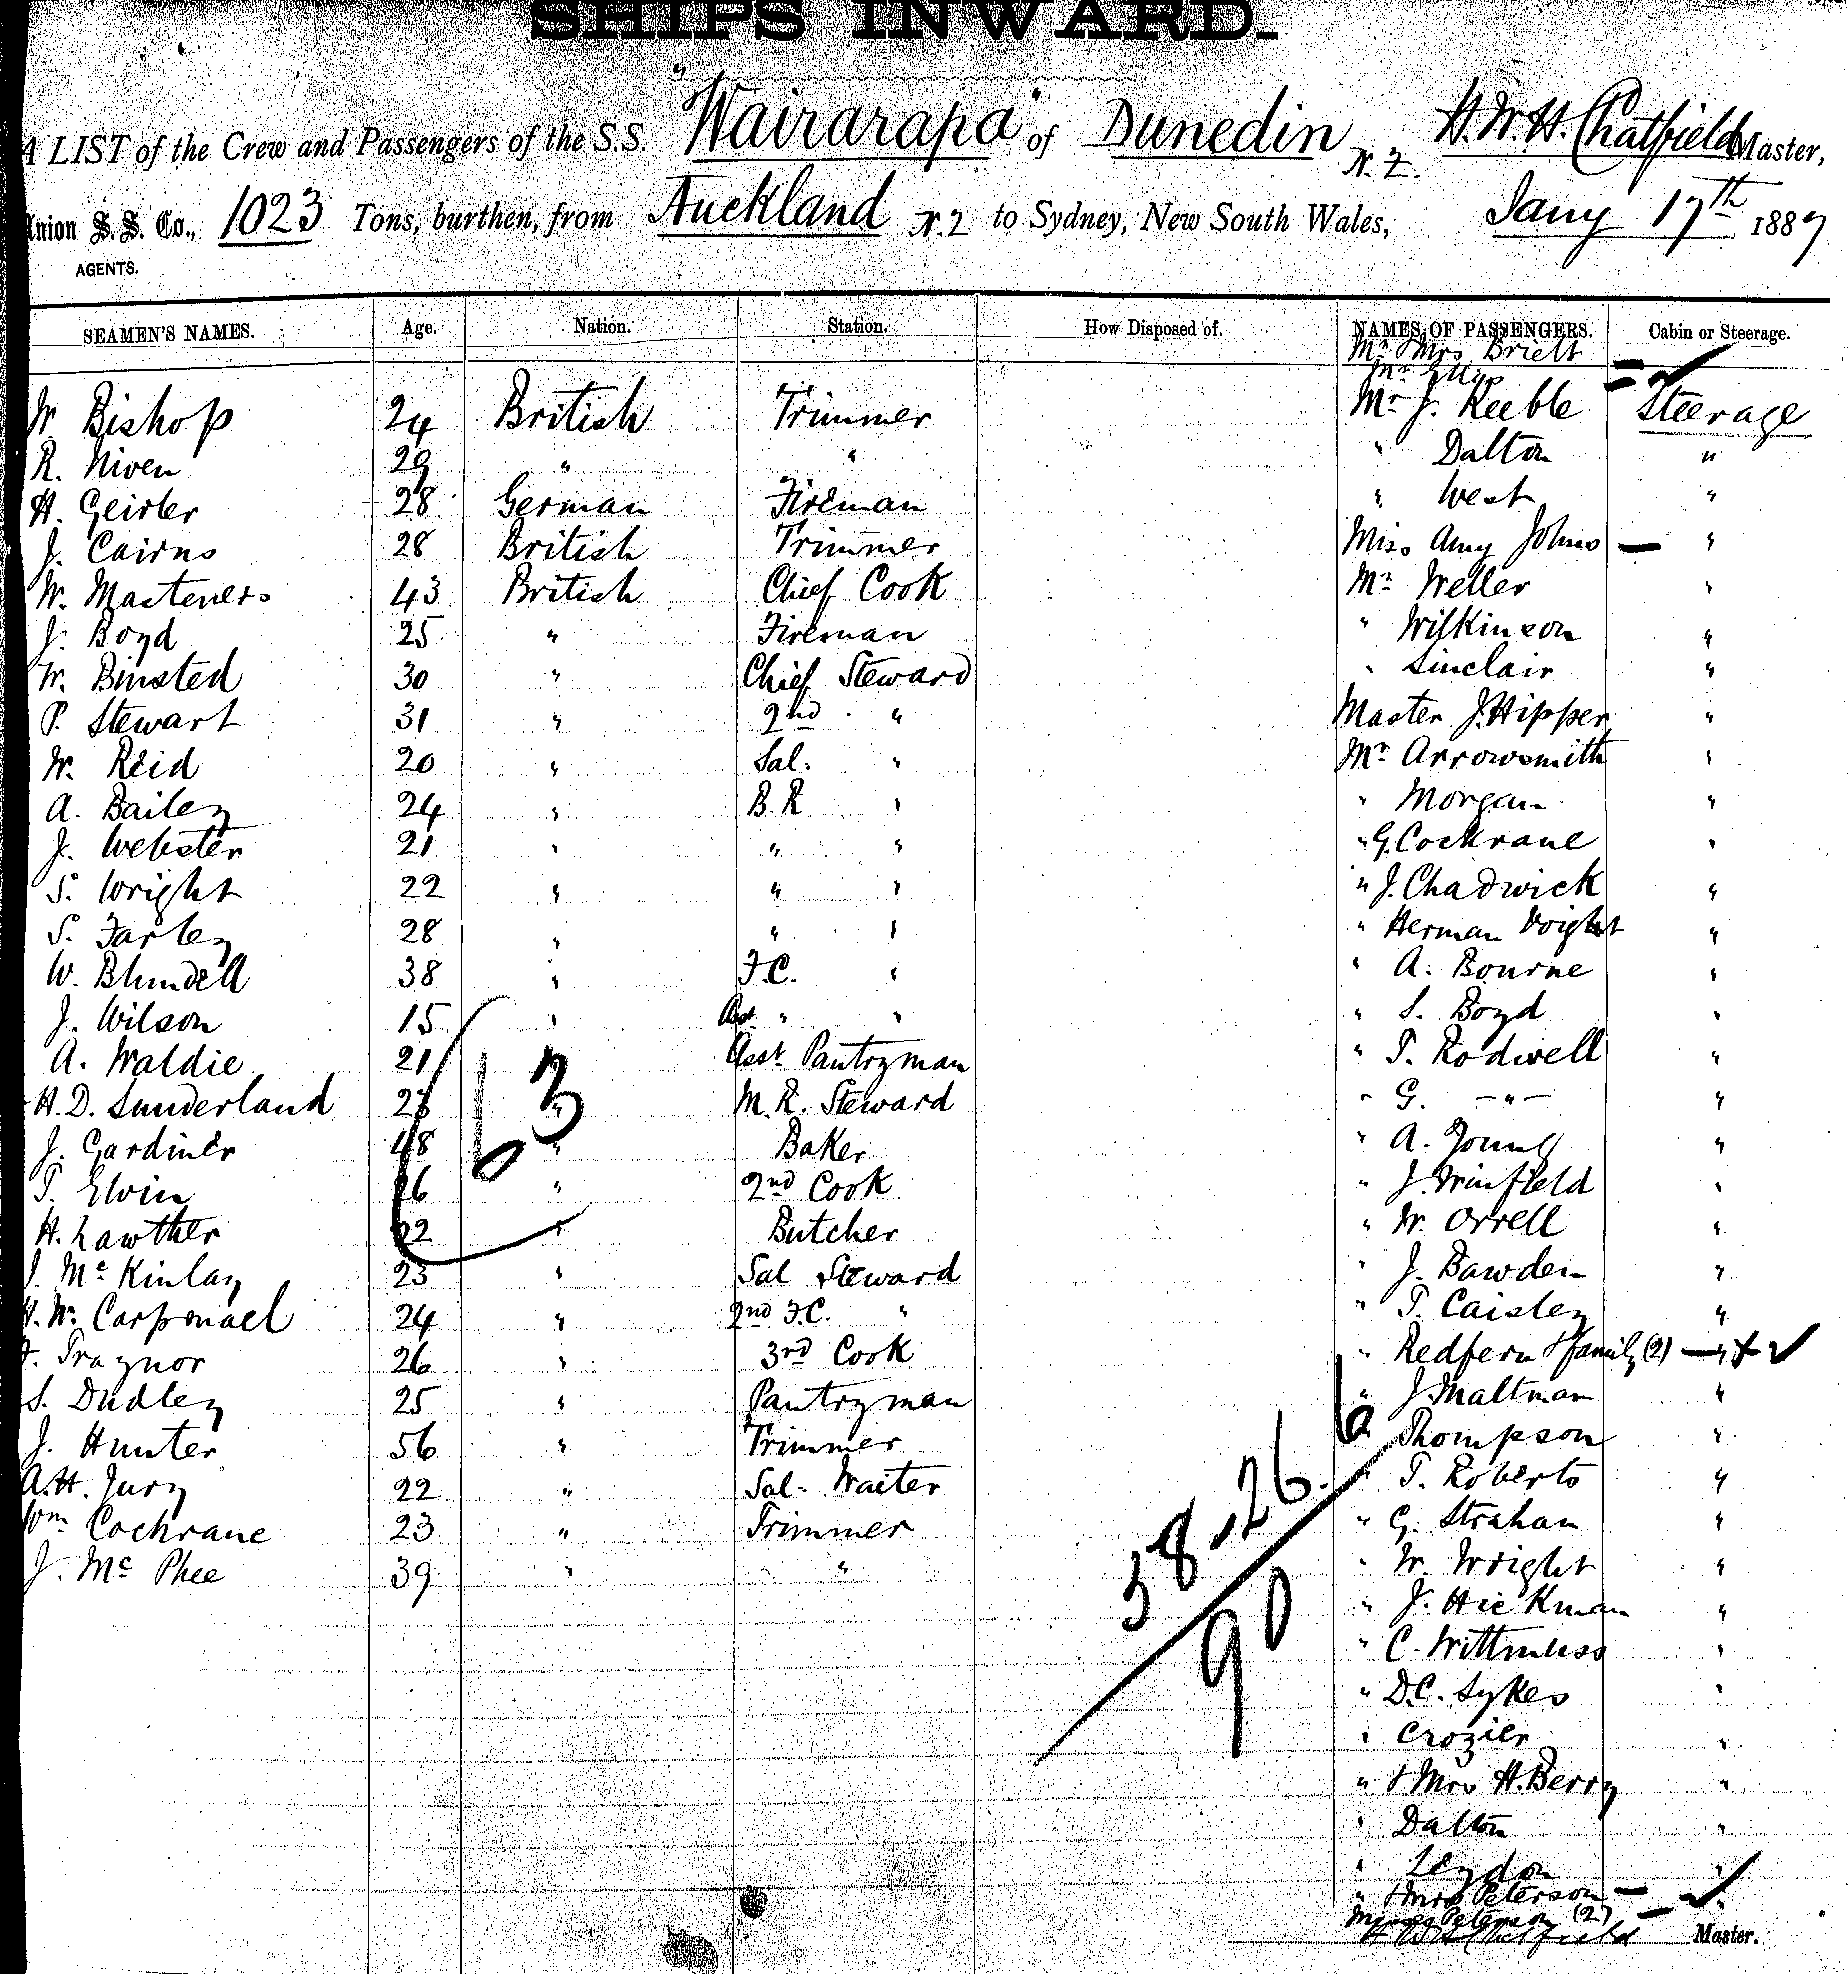 SHIPS INWARD.
A LIST of the Crew and Passengers of the S.S. "Wairarapa" of Dunedin N.Z. H.W.H. Chatfield Master,
Union S.S. Co., 1023 Tons, burthen, from Auckland N.Z to Sydney, New South Wales, Jany 17th 1887
AGENTS.
SEAMEN'S NAMES. Age. Nation. Station. How Disposed of. NAMES OF PASSENGERS. Cabin or Steerage.
Mr & Mrs Brielt
W Bishop 24 British Trimmer Mr J. Keeble Steerage
R. Niven 29 " " " Dalton "
H. Geirler 28 German Fireman " West "
J. Cairns 28 British Trimmer Miss Amy Johns — "
W. Masteners 43 British Chief Cook Mr Weller "
J. Boyd 25 " Fireman " Wilkinson "
W. Binsted 30 " Chief Steward " Sinclair "
P. Stewart 31 " 2nd " Master J. Hipper "
W. Reid 20 " Sal. " Mr Arrowsmith "
A. Bailey 24 " B.R " " Morgan "
J. Webster 21 " " " " G. Cockrane "
S. Wright 22 " " " " J. Chadwick "
S. Farley 28 " " " " Herman Voight "
W. Blundell 38 " F.C. " " A. Bourne "
J. Wilson 15 " Asst. " " " S. Boyd "
A. Waldie 21 Asst Pantryman " T. Rodwell "
H.D. Sunderland 23 " M.R. Steward " G. —"— "
J. Gardiner 48 " Baker " A. Young "
T. Elvin 26 " 2nd Cook " J. Winfield "
H. Lawther 22 " Butcher " W. Orrell "
J. McKinlay 23 " Sal Steward " J. Bawden "
H. W. Carpmael 24 " 2nd F.C. " " T. Caisley "
Traynor 26 " 3rd Cook " Redfern & family (2) — "
S. Dudley 25 " Pantryman " J Maltman "
J. Hunter 56 " Trimmer " Thompson "
A.H. Jury 22 " Sal. Waiter " T. Roberts "
Wm Cochrane 23 " Trimmer " G. Strahan "
J. McPhee 39 " " " W. Wright "
" J. Hickman "
" C. Wittmuss "
" D.C. Sykes "
" Crozier "
" & Mrs H. Berry "
" Dalton "
" Leydon "
" & Mrs Peterson —
Misses Peterson (2) —
H W H Chatfield Master.
63
58.26.6
90